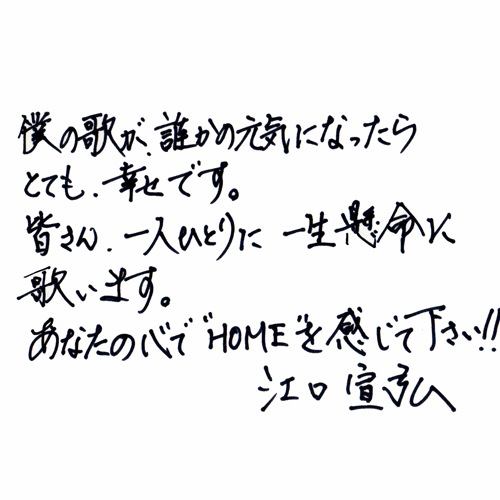 僕の歌が、誰かの元気になったら
とても、幸せです。
皆さん、一人ひとりに 一生懸命に
歌います。
あなたの心で"HOME"を感じて下さい!!
江口宣弘